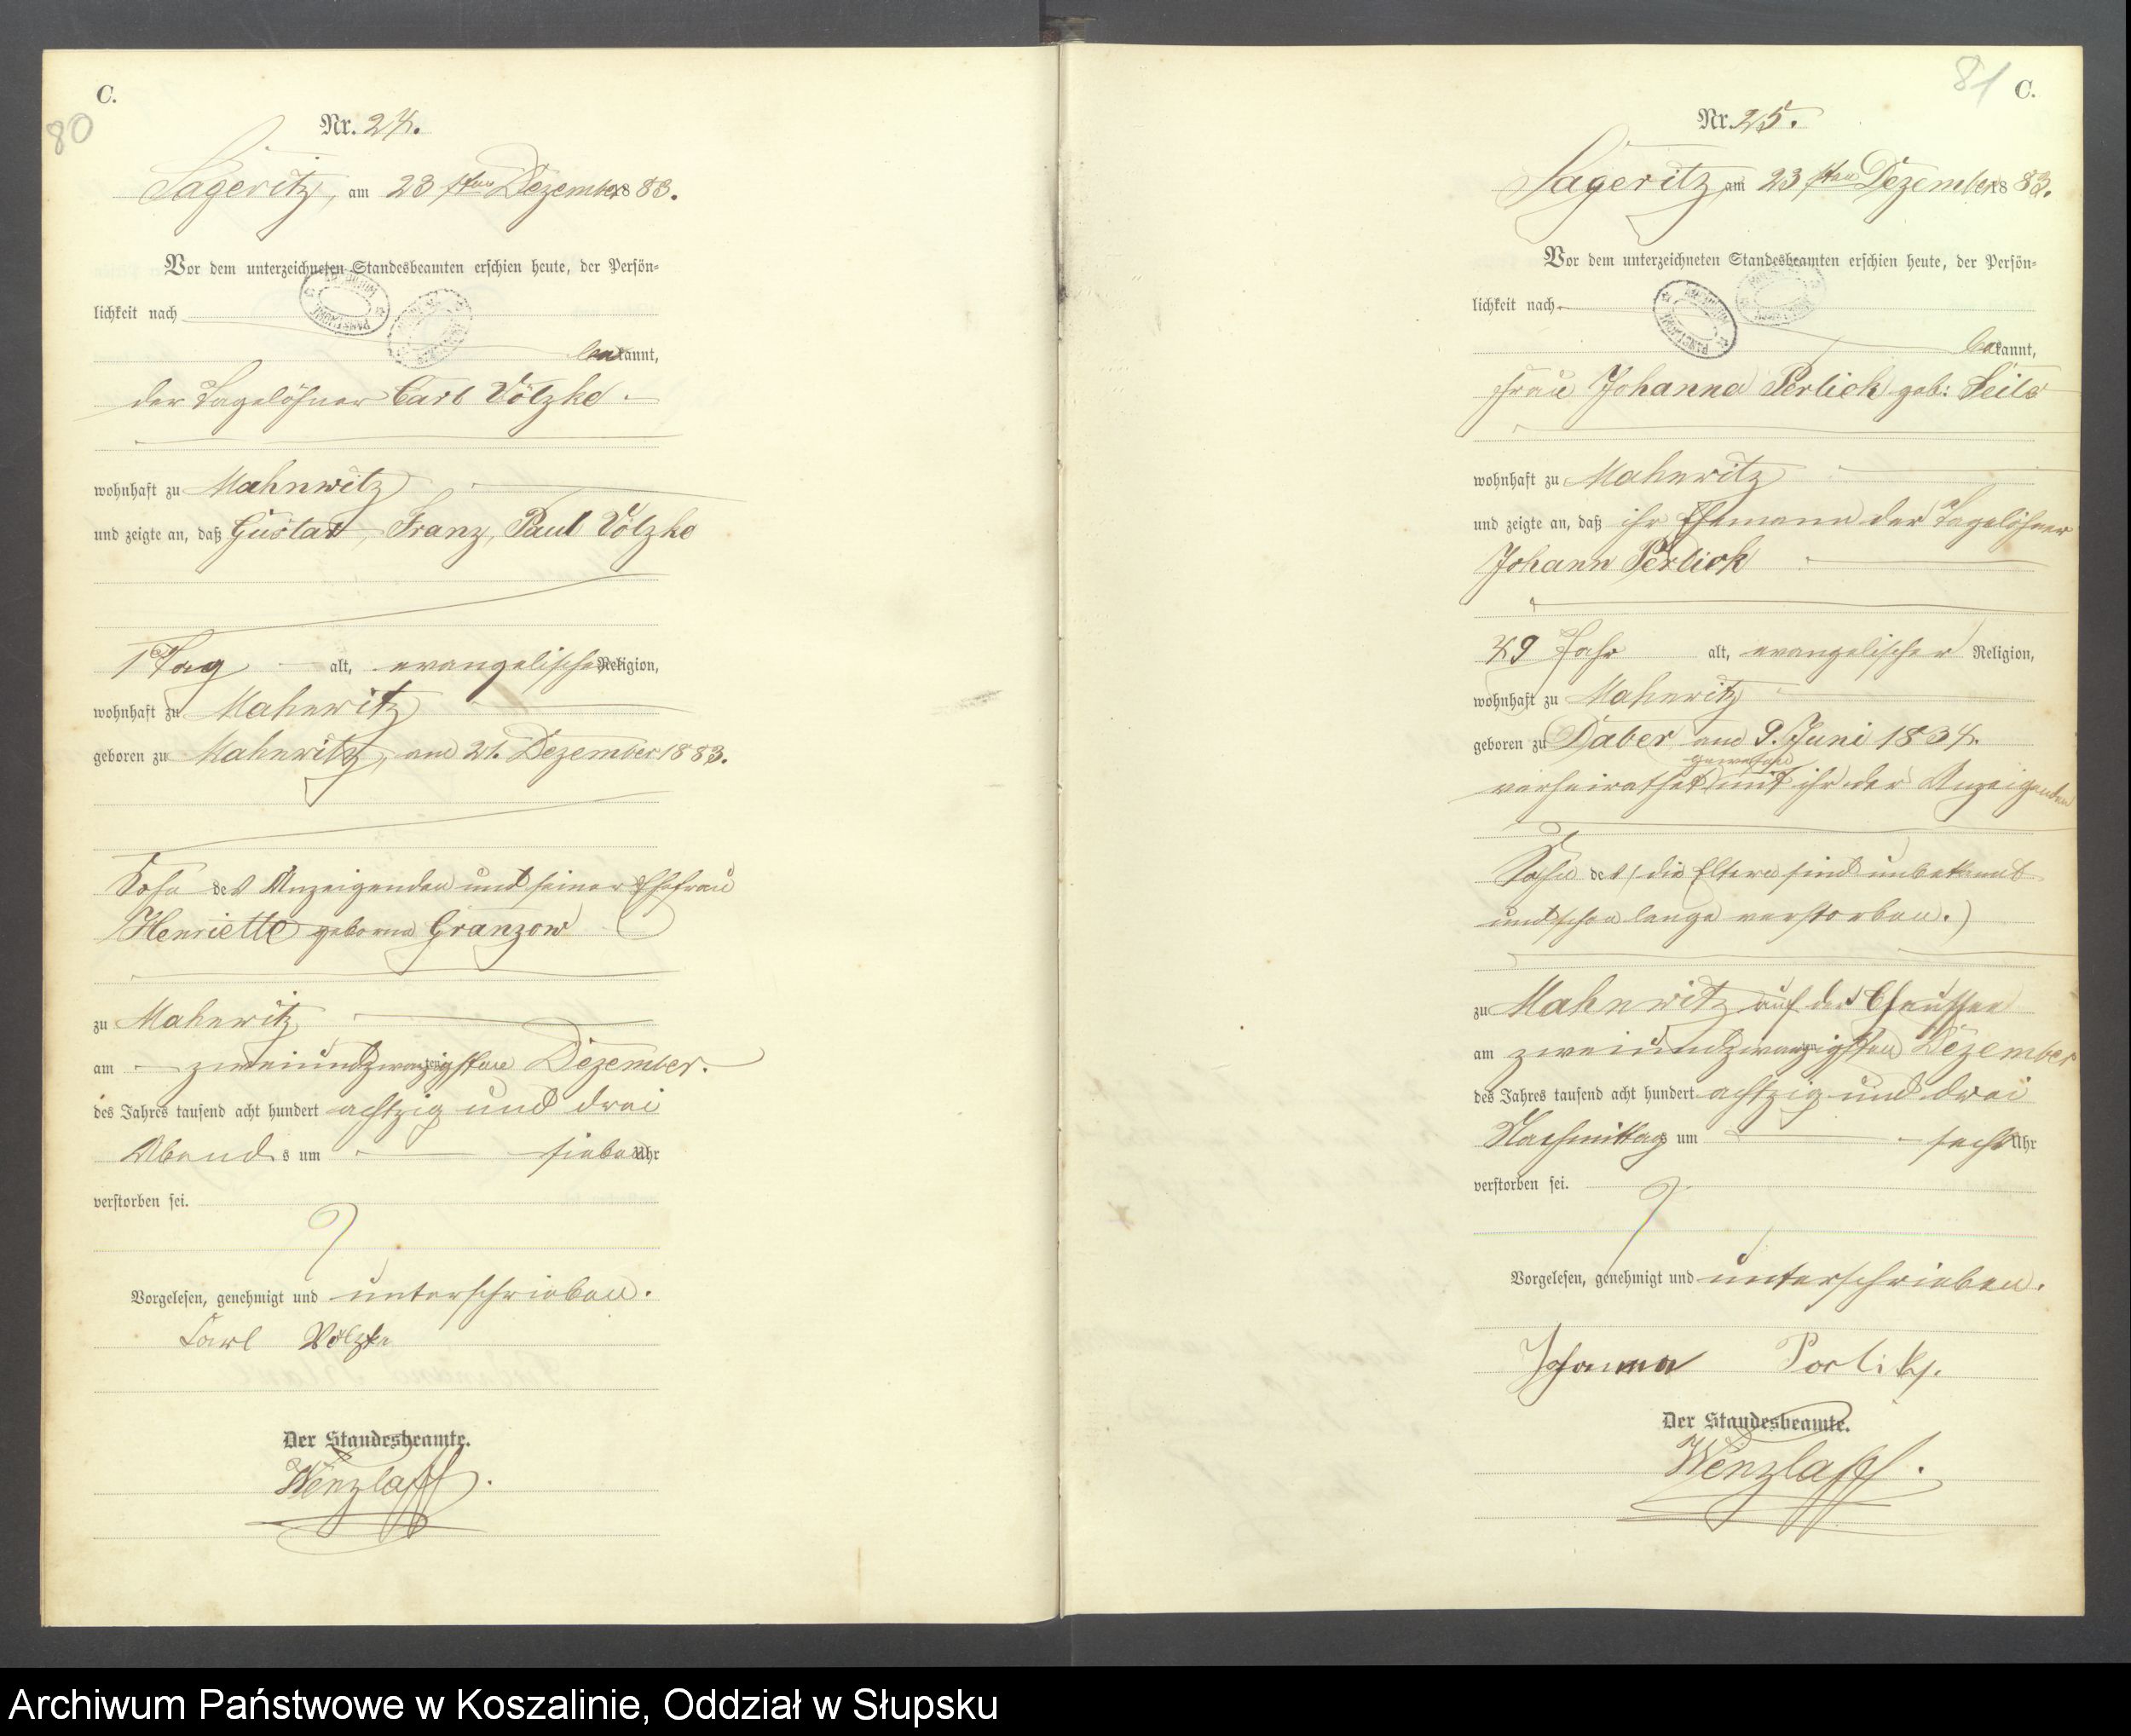 C.
80
Nr. 24.
Sageritz, am 23sten Dezember 1883.
Vor dem unterzeichneten Standesbeamten erschien heute, der Persön-
lichkeit nach
bekannt,
der Tagelöhner Carl Völzke
wohnhaft zu Mahnwitz
und zeigte an, daß Gustav, Franz, Paul Völzke
1 Tag alt, evangelischer Religion,
wohnhaft zu Mahnwitz
geboren zu Mahnwitz, am 21. Dezember 1883.
Sohn des Anzeigenden und seiner Ehefrau
Henriette geborne Granzow
zu Mahnwitz
am zweiundzwanzigsten Dezember.
des Jahres tausend acht hundert achtzig und drei
Abends um sieben Uhr
verstorben sei.
Vorgelesen, genehmigt und unterschrieben.
Carl Völzke
Der Standesbeamte.
Wenzlaff.
81 C.
Nr. 25.
Sageritz am 23sten Dezember 1883.
Vor dem unterzeichneten Standesbeamten erschien heute, der Persön-
lichkeit nach
bekannt,
Frau Johanna Perlick geb:
wohnhaft zu Mahnwitz
und zeigte an, daß ihr Ehemann der Tagelöhner
Johann Perlick
49 Jahr alt, evangelischer Religion,
wohnhaft zu Mahnwitz
geboren zu Daber am 9. Juni 1834.
gewesen
verheirathet mit ihr der Anzeigenden
Sohn des (die Eltern sind unbekannt
und schon lange verstorben.)
zu Mahnwitz auf der Chaussee
am zweiundzwanzigsten Dezember
des Jahres tausend acht hundert achtzig und drei
Nachmittags um sechs Uhr
verstorben sei.
Vorgelesen, genehmigt und unterschrieben.
Johanna Perlick.
Der Standesbeamte.
Wenzlaff.
Archiwum Państwowe w Koszalinie, Oddział w Słupsku